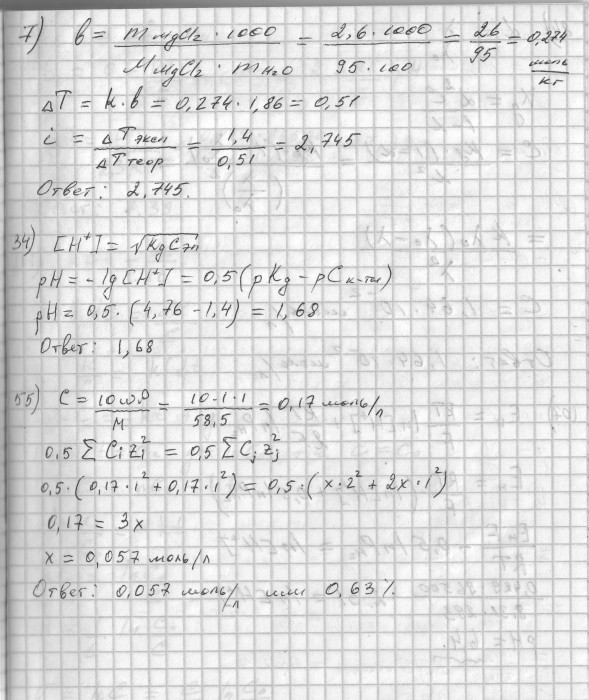 7) b = mMgCl2 · 1000 / MMgCl2 · mH2O = 2,6 · 1000 / 95 · 100 = 26 / 95 = 0,274 моль/кг
ΔT = k · b = 0,274 · 1,86 = 0,51
i = ΔTэксп / ΔTтеор = 1,4 / 0,51 = 2,745
Ответ: 2,745.
34) [H⁺] = √KдCэл
pH = -lg[H⁺] = 0,5 (pKд - pCк-ты)
pH = 0,5 · (4,76 - 1,4) = 1,68
Ответ: 1,68
55) C = 10ωρ / M = 10 · 1 · 1 / 58,5 = 0,17 моль/л
0,5 Σ Cizi² = 0,5 Σ Cjzj²
0,5 · (0,17 · 1² + 0,17 · 1²) = 0,5 · (x · 2² + 2x · 1²)
0,17 = 3x
x = 0,057 моль/л
Ответ: 0,057 моль/л или 0,63%